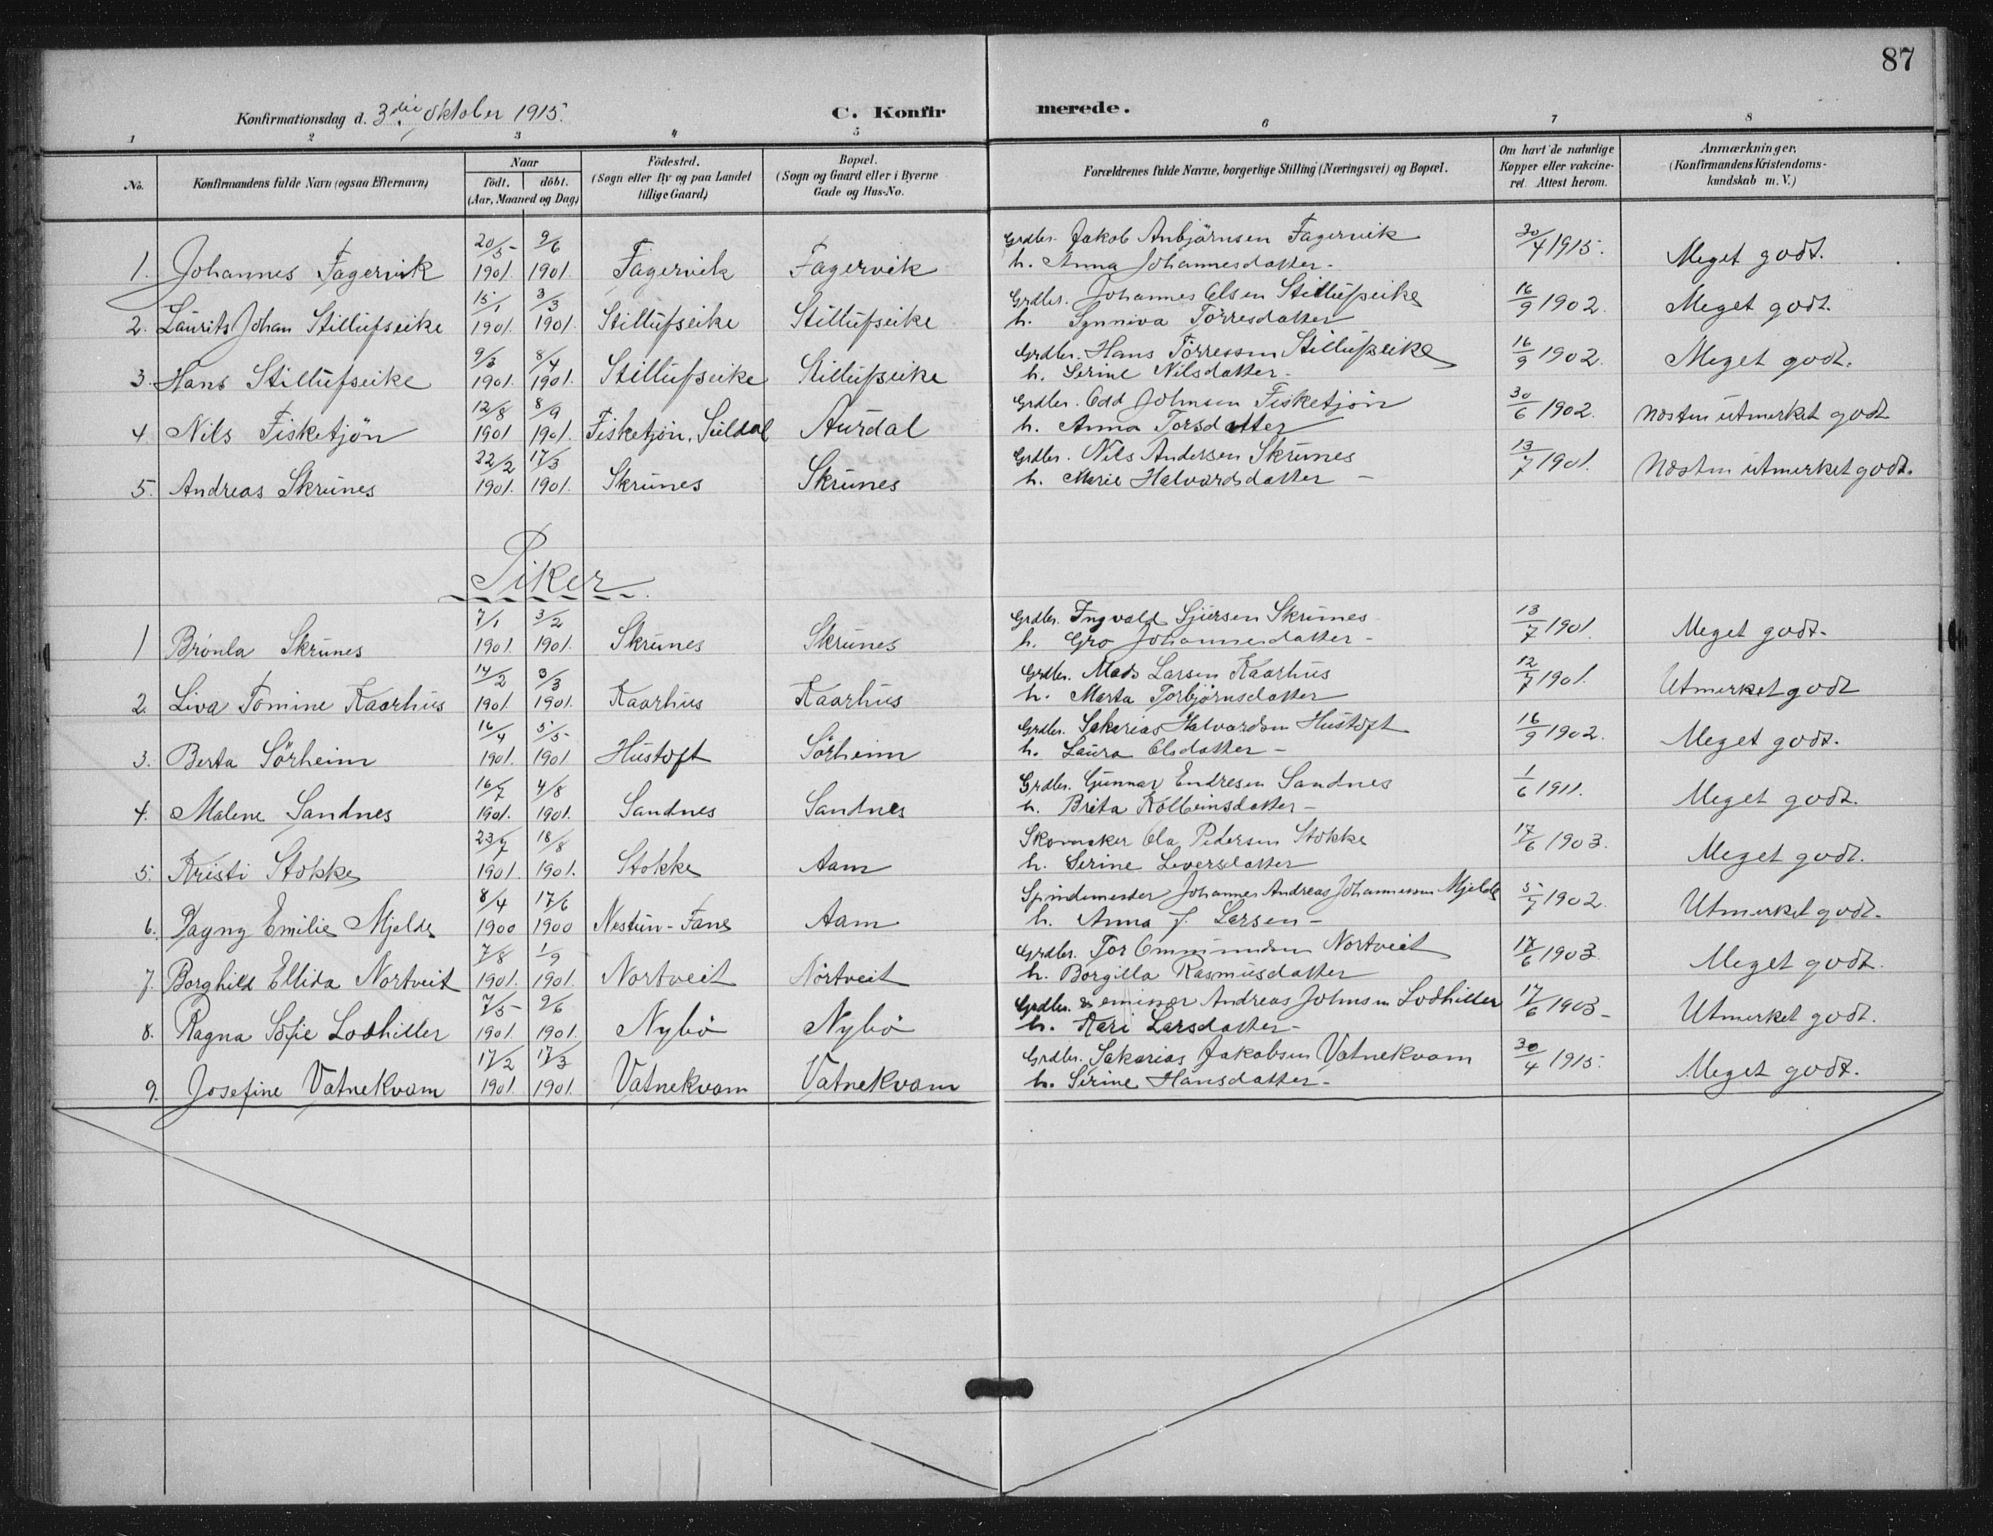 87
Konfirmationsdag d. 3die oktober 1915. C. Konfirmerede.
1 2 3 4 5 6 7 8
No. Konfirmandens fulde Navn (ogsaa Efternavn) Naar födt. döbt. (Aar, Maaned og Dag) Födested. (Sogn eller By og paa Landet tillige Gaard) Bopæl. (Sogn og Gaard eller i Byerne Gade og Hus-No. Forældrenes fulde Navne, borgerlige Stilling (Næringsvei) og Bopæl. Om havt de naturlige Kopper eller vakcineret. Attest herom. Anmærkninger. (Konfirmandens Kristendomskundskab m. V.)
20/5 9/6 Grdbr. Jakob Anbjørnsen Fagervik 30/4 1915.
1. Johannes Fagervik 1901. 1901. Fagervik Fagervik h. Anna Johannesdatter - Meget godt.
15/1 3/3 Grdbr. Johannes Olsen Stillufseike 16/9 1902.
2. Laurits Johan Stillufseike 1901. 1901. Stillufseike Stillufseike h. Synniva Torresdatter Meget godt.
9/3 8/4 Grdbr. Hans Törressen Stillufseike 16/9 1902.
3. Hans Stillufseike 1901. 1901. Stillufseike Stillufseike h. Serine Nilsdatter - Meget godt.
12/8 8/9 Grdbr. Odd Johnsen Fisketjön 30/6 1902.
4 Nils Fisketjön 1901 1901. Fisketjön, Suldal Aurdal h. Anna Torsdatter Næsten utmerket godt
22/2 17/3 Grdbr. Nils Andersen Skrunes 13/7 1901.
5. Andreas Skrunes 1901. 1901. Skrunes Skrunes h. Marie Halvardsdatter - Næsten utmerket godt.
Piker
7/1 3/2 Grdbr. Ingvald Sjursen Skrunes 13/7 1901.
1 Brønla Skrunes 1901. 1901. Skrunes Skrunes h. Gro Johannesdatter - Meget godt.
14/2 3/3 Grdbr. Mads Larsen Kaarhus 12/7 1901.
2. Liva Tomine Kaarhus 1901. 1901. Kaarhus Kaarhus h. Marta Torbjørnsdatter Utmerket godt
16/4 5/5 Grdbr. Sakarias Halvardsen Hustoft 16/9 1902.
3. Berta Sörheim 1901. 1901 Hustoft Sörheim h. Laura Olsdatter - Meget godt.
16/7 4/8 Grdbr. Gunnar Endresen Sandnes 1/6 1911.
4. Malene Sandnes 1901. 1901. Sandnes Sandnes h. Brita Kolbeinsdatter - Meget godt.
23/7 18/8 Skomaker Ola Pedersen Stokke 17/6 1903.
5. Kristi Stokke 1901. 1901. Stokke Aam h. Serine Leversdatter Meget godt.
8/4 17/6 Spindemester Johannes Andreas Johannessen Mjelde 5/7 1902.
6. Dagny Emilie Mjelde 1900 1900 Nestun - Fane Aam h. Anna J. Larsen - Utmerket godt.
7/8 1/9 Grdbr. Tor Ommundsen Nortveit 17/6 1903
7. Borghild Ellida Nortveit 1901. 1901. Nortveit Nortveit h. Borgilla Rasmusdatter Meget godt.
7/5 9/6 Grdbr. & emissær Andreas Johnsen Lodhiller 17/6 1903-
8. Ragna Sofie Lodhiller 1901. 1901. Nybö Nybö h. Kari Larsdatter - Utmerket godt.
17/2 17/3 Grdbr. Sakarias Jakobsen Vatnekvam 30/4 1915.
9. Josefine Vatnekvam 1901. 1901. Vatnekvam Vatnekvam h. Serine Hansdatter - Meget godt.